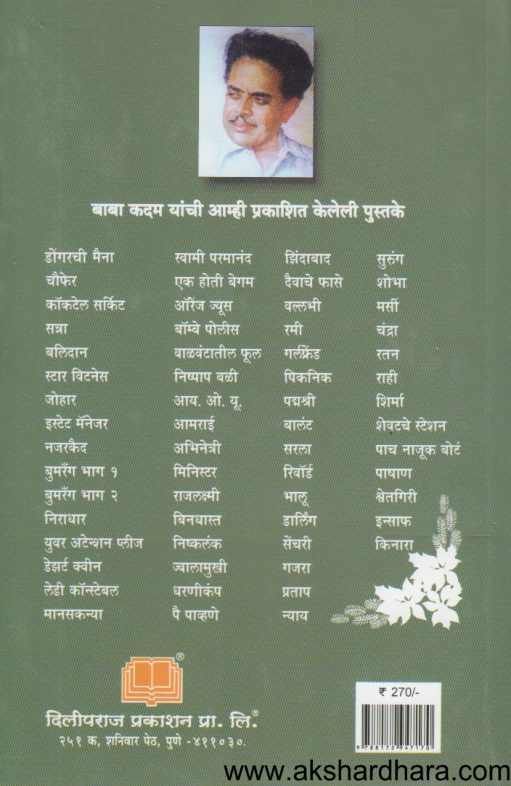 बाबा कदम यांची आम्ही प्रकाशित केलेली पुस्तके
डोंगरची मैना
चौफेर
कॉकटेल सर्किट
सत्रा
बलिदान
स्टार विटनेस
जोहार
इस्टेट मॅनेजर
नजरकैद
बुमरँग भाग १
बुमरँग भाग २
निराधार
युवर अटेन्शन प्लीज
डेझर्ट क्वीन
लेडी कॉन्स्टेबल
मानसकन्या
स्वामी परमानंद
एक होती बेगम
ऑरेंज ज्यूस
बॉम्बे पोलीस
वाळवंटातील फूल
निष्पाप बळी
आय. ओ. यू.
आमराई
अभिनेत्री
मिनिस्टर
राजलक्ष्मी
बिनधास्त
निष्कलंक
ज्वालामुखी
धरणीकंप
पै पाव्हणे
झिंदाबाद
दैवाचे फासे
वल्लभी
रमी
गर्लफ्रेंड
पिकनिक
पद्मश्री
बालंट
सरला
रिवॉर्ड
भालू
डार्लिंग
सेंचरी
गजरा
प्रताप
न्याय
सुरुंग
शोभा
मर्सी
चंद्रा
रतन
राही
शिर्मा
शेवटचे स्टेशन
पाच नाजूक बोटं
पाषाण
श्वेतगिरी
इन्साफ
किनारा
®
दिलीपराज प्रकाशन प्रा. लि.®
२५१ क, शनिवार पेठ, पुणे -४११०३०.
₹ 270/-
www.akshardhara.com